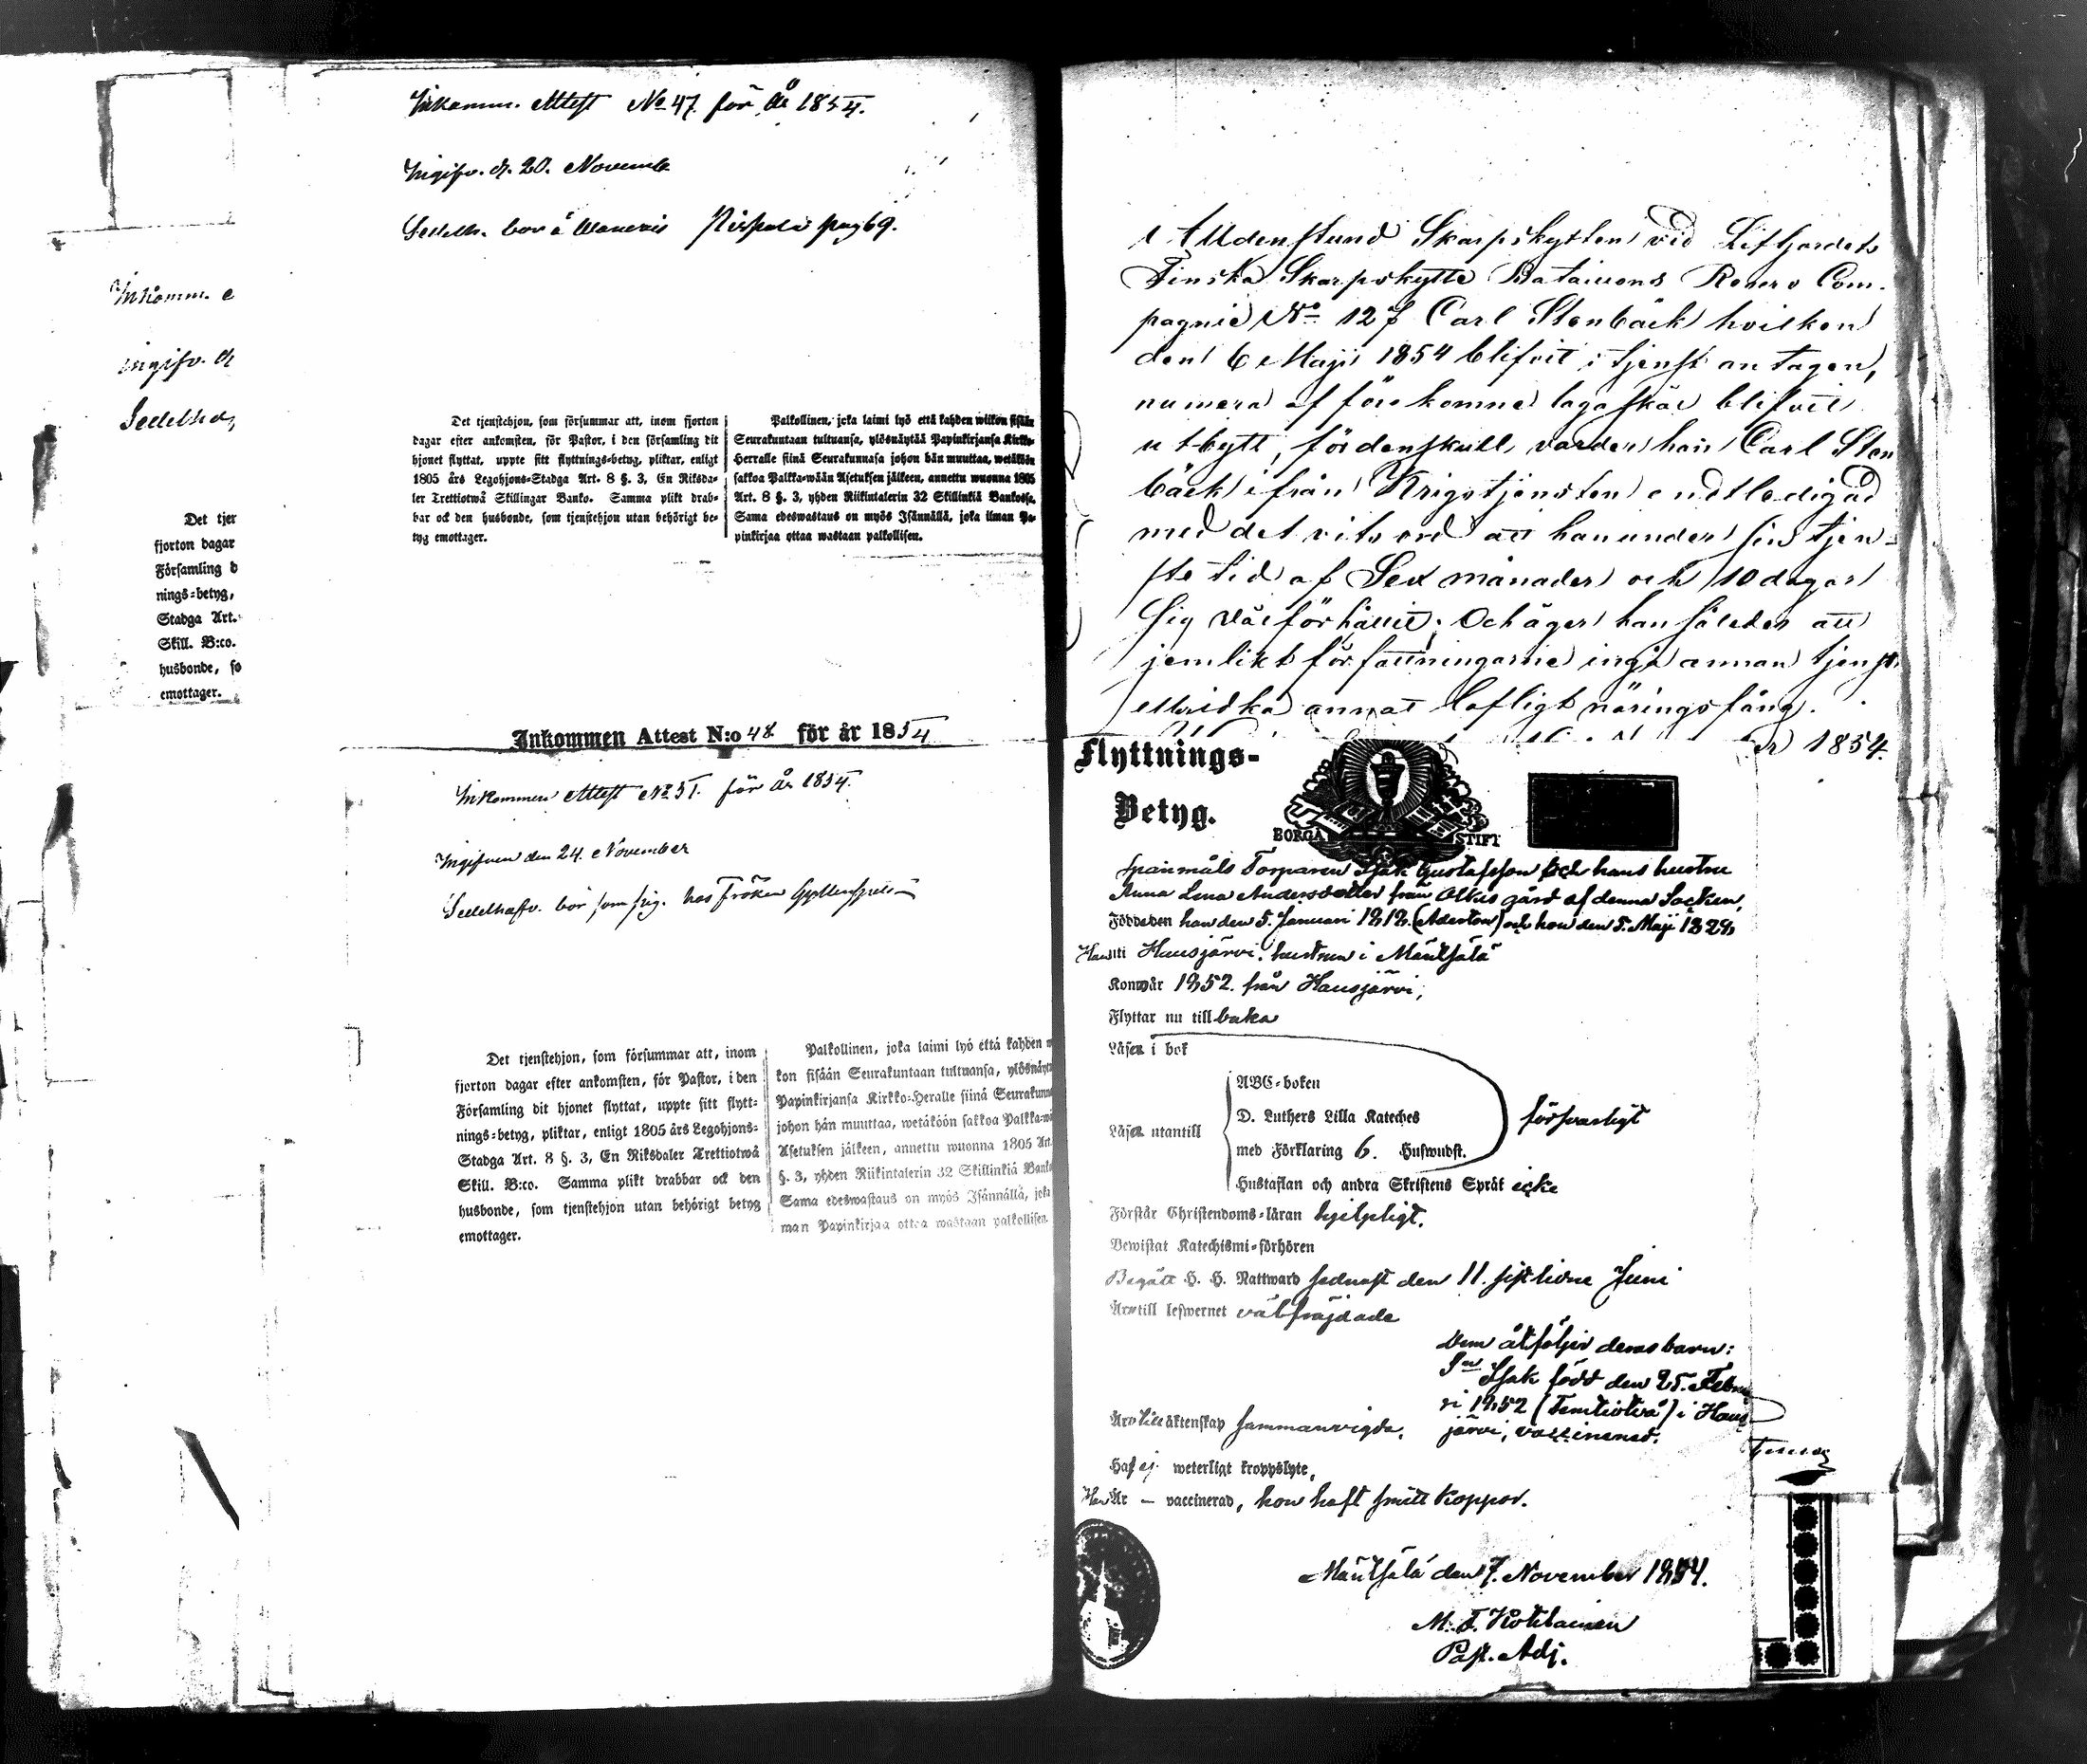 Inkomm. Attest No 47. för år 1854.
Ingifv. d. 20. Novemb
Sedelh. bor å pag 69.
Det tjenstehjon, som försummar att, inom fjorton
dagar efter ankomsten, för Pastor, i den församling dit
hjonet flyttat, uppte sitt flyttnings-betyg, pliktar, enligt
1805 års Legohjons-Stadga Art. 8 §. 3, En Riksda-
ler Trettiotwå Skillingar Banko. Samma plikt drab-
bar ock den husbonde, som tjenstehjon utan behörigt be-
tyg emottager.
Palkollinen, joka laimi lyö että kahden wiikon sisään
Seurakuntaan tultuansa, ylösnäytää Papinkirjansa Kirkko-
Herralle siinä Seurakunnasa johon hän muuttaa, wetäköön
sakkoa Palkka-wään Asetuksen jälkeen, annettu wuonna 1805
Art. 8 §. 3, yhden Riikintalerin 32 Skillinkiä Bankossa.
Sama edeswastaus on myös Isännällä, joka ilman Pa-
pinkirjaa ottaa wastaan palkollisen.
Inkomm.
ingifv. d
Sedelha
Det tjen
fjorton dagar
Församling d
nings-betyg,
Stadga Art.
Skill. B:co.
husbonde, so
emottager.
Inkommen Attest N:o 48 för år 1854
Inkommen Attest No 51. för år 1854.
Ingifven den 24. November
Sedelhafv. bor som hos Fröken
Det tjenstehjon, som försummar att, inom
fjorton dagar efter ankomsten, för Pastor, i den
Församling dit hjonet flyttat, uppte sitt flytt-
nings-betyg, pliktar, enligt 1805 års Legohjons-
Stadga Art. 8 §. 3, En Riksdaler Trettiotwå
Skill. B:co. Samma plikt drabbar ock den
husbonde, som tjenstehjon utan behörigt betyg
emottager.
Palkollinen, joka laimi lyö että kahden w
kon sisään Seurakuntaan tultuansa, ylösnäyt
Papinkirjansa Kirkko-Heralle siinä Seurakunn
johon hän muuttaa, wetäköön sakkoa Palkka-w
Asetuksen jälkeen, annettu wuonna 1805 Art.
§. 3, yhden Riikintalerin 32 Skillinkiä Bank
Sama edeswastaus on myös Isännällä, joka
man Papinkirjaa ottaa wastaan palkollisen.
Alldenstund Skarpskytten vid Lifgardets
Finska Skarpskytte Bataillons Reserv Com-
pagnie No 127 Carl Stenbäck hvilken
den 6 Maji 1854 blifvit i tjenst antagen,
numera af förekomne laga skäl blifvit
utbytt, fördenskull varder han Carl Sten
bäck ifrån Krigstjensten entledigad
med det vitsord att han under sin tjen-
ste tid af Sex månader och 10 dagar
sig väl förhållit; Och äger han således att
jemlikt författningarne ingå annan tjenst
eller idka annat lofligt näringsfång.
er 1854.
Flyttnings-
Betyg.
BORGÅ STIFT
Torparen Isak Gustafsson och hans hustru
Anna Lena Andersdotter från Olkis gård af denna Socken,
Född den han den 5. Januari 1818. (Aderton) och hon den 5. Maji 1828
Han i Hausjärvi, hustrun i Mäntsälä
Kom år 1852. från Hausjärvi,
Flyttar nu till baka
Läser i bok
Läser utantill
ABC-boken
D. Luthers Lilla Kateches
med Förklaring 6. Hufwudst.
Hustaflan och andra Skriftens Språk icke
försvarligt
Förstår Christendoms-läran hjelpligt.
Bewistat Katechismi-förhören
Begått H. H. Nattward sednast den 11. sistlidne Juni
Äro till lefwernet välfräjdade
Dem åtföljer deras barn:
Son Isak född den 25. Februa
ri 1852 (femtiotvå) i Haus
järvi, vaccinerad.
Äro till äktenskap sammanvigda.
Haf ej weterligt kroppslyte,
Han Är – vaccinerad, hon haft smitt koppor.
Mäntsälä den 7. November 1854.
Past. Adj.